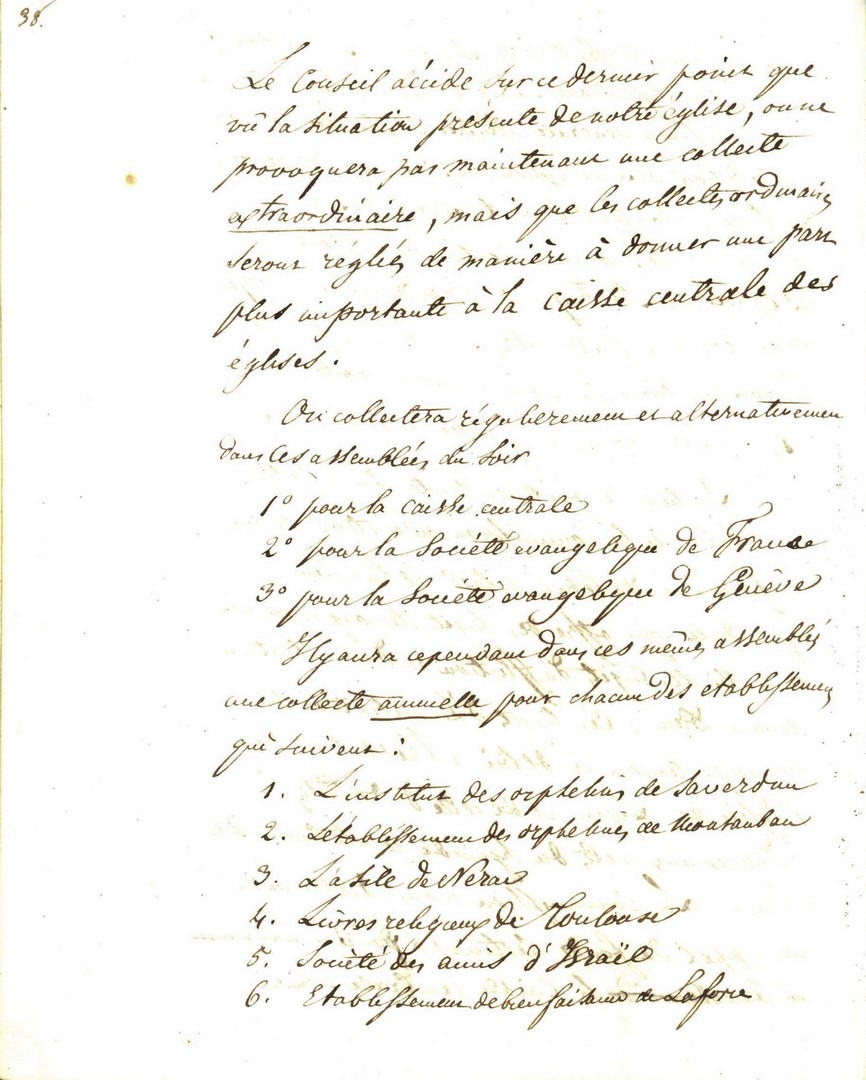 38.
Le Conseil décide sur ce dernier point que
vû la situation présente de notre église, on ne
provoquera pas maintenant une collecte
extraordinaire, mais que les collectes ordinaires
seront réglées de manière à donner une part
plus importante à la caisse centrale des
églises.
On collectera régulièrement et alternativement
dans les assemblées du soir
1º pour la caisse centrale
2º pour la Société evangelique de France
3º pour la Société evangelique de Genève
Il y aura cependant dans ces mêmes assemblées
une collecte annuelle pour chacun des etablissemens
qui suivent :
1. L'institut des orphelins de Saverdun
2. L'établissement des orphelines de Montauban
3. L'asile de Nerac
4. Livres religieux de Toulouse
5. Société des amis d'Israël
6. Etablissement de bienfaisance de Laforce